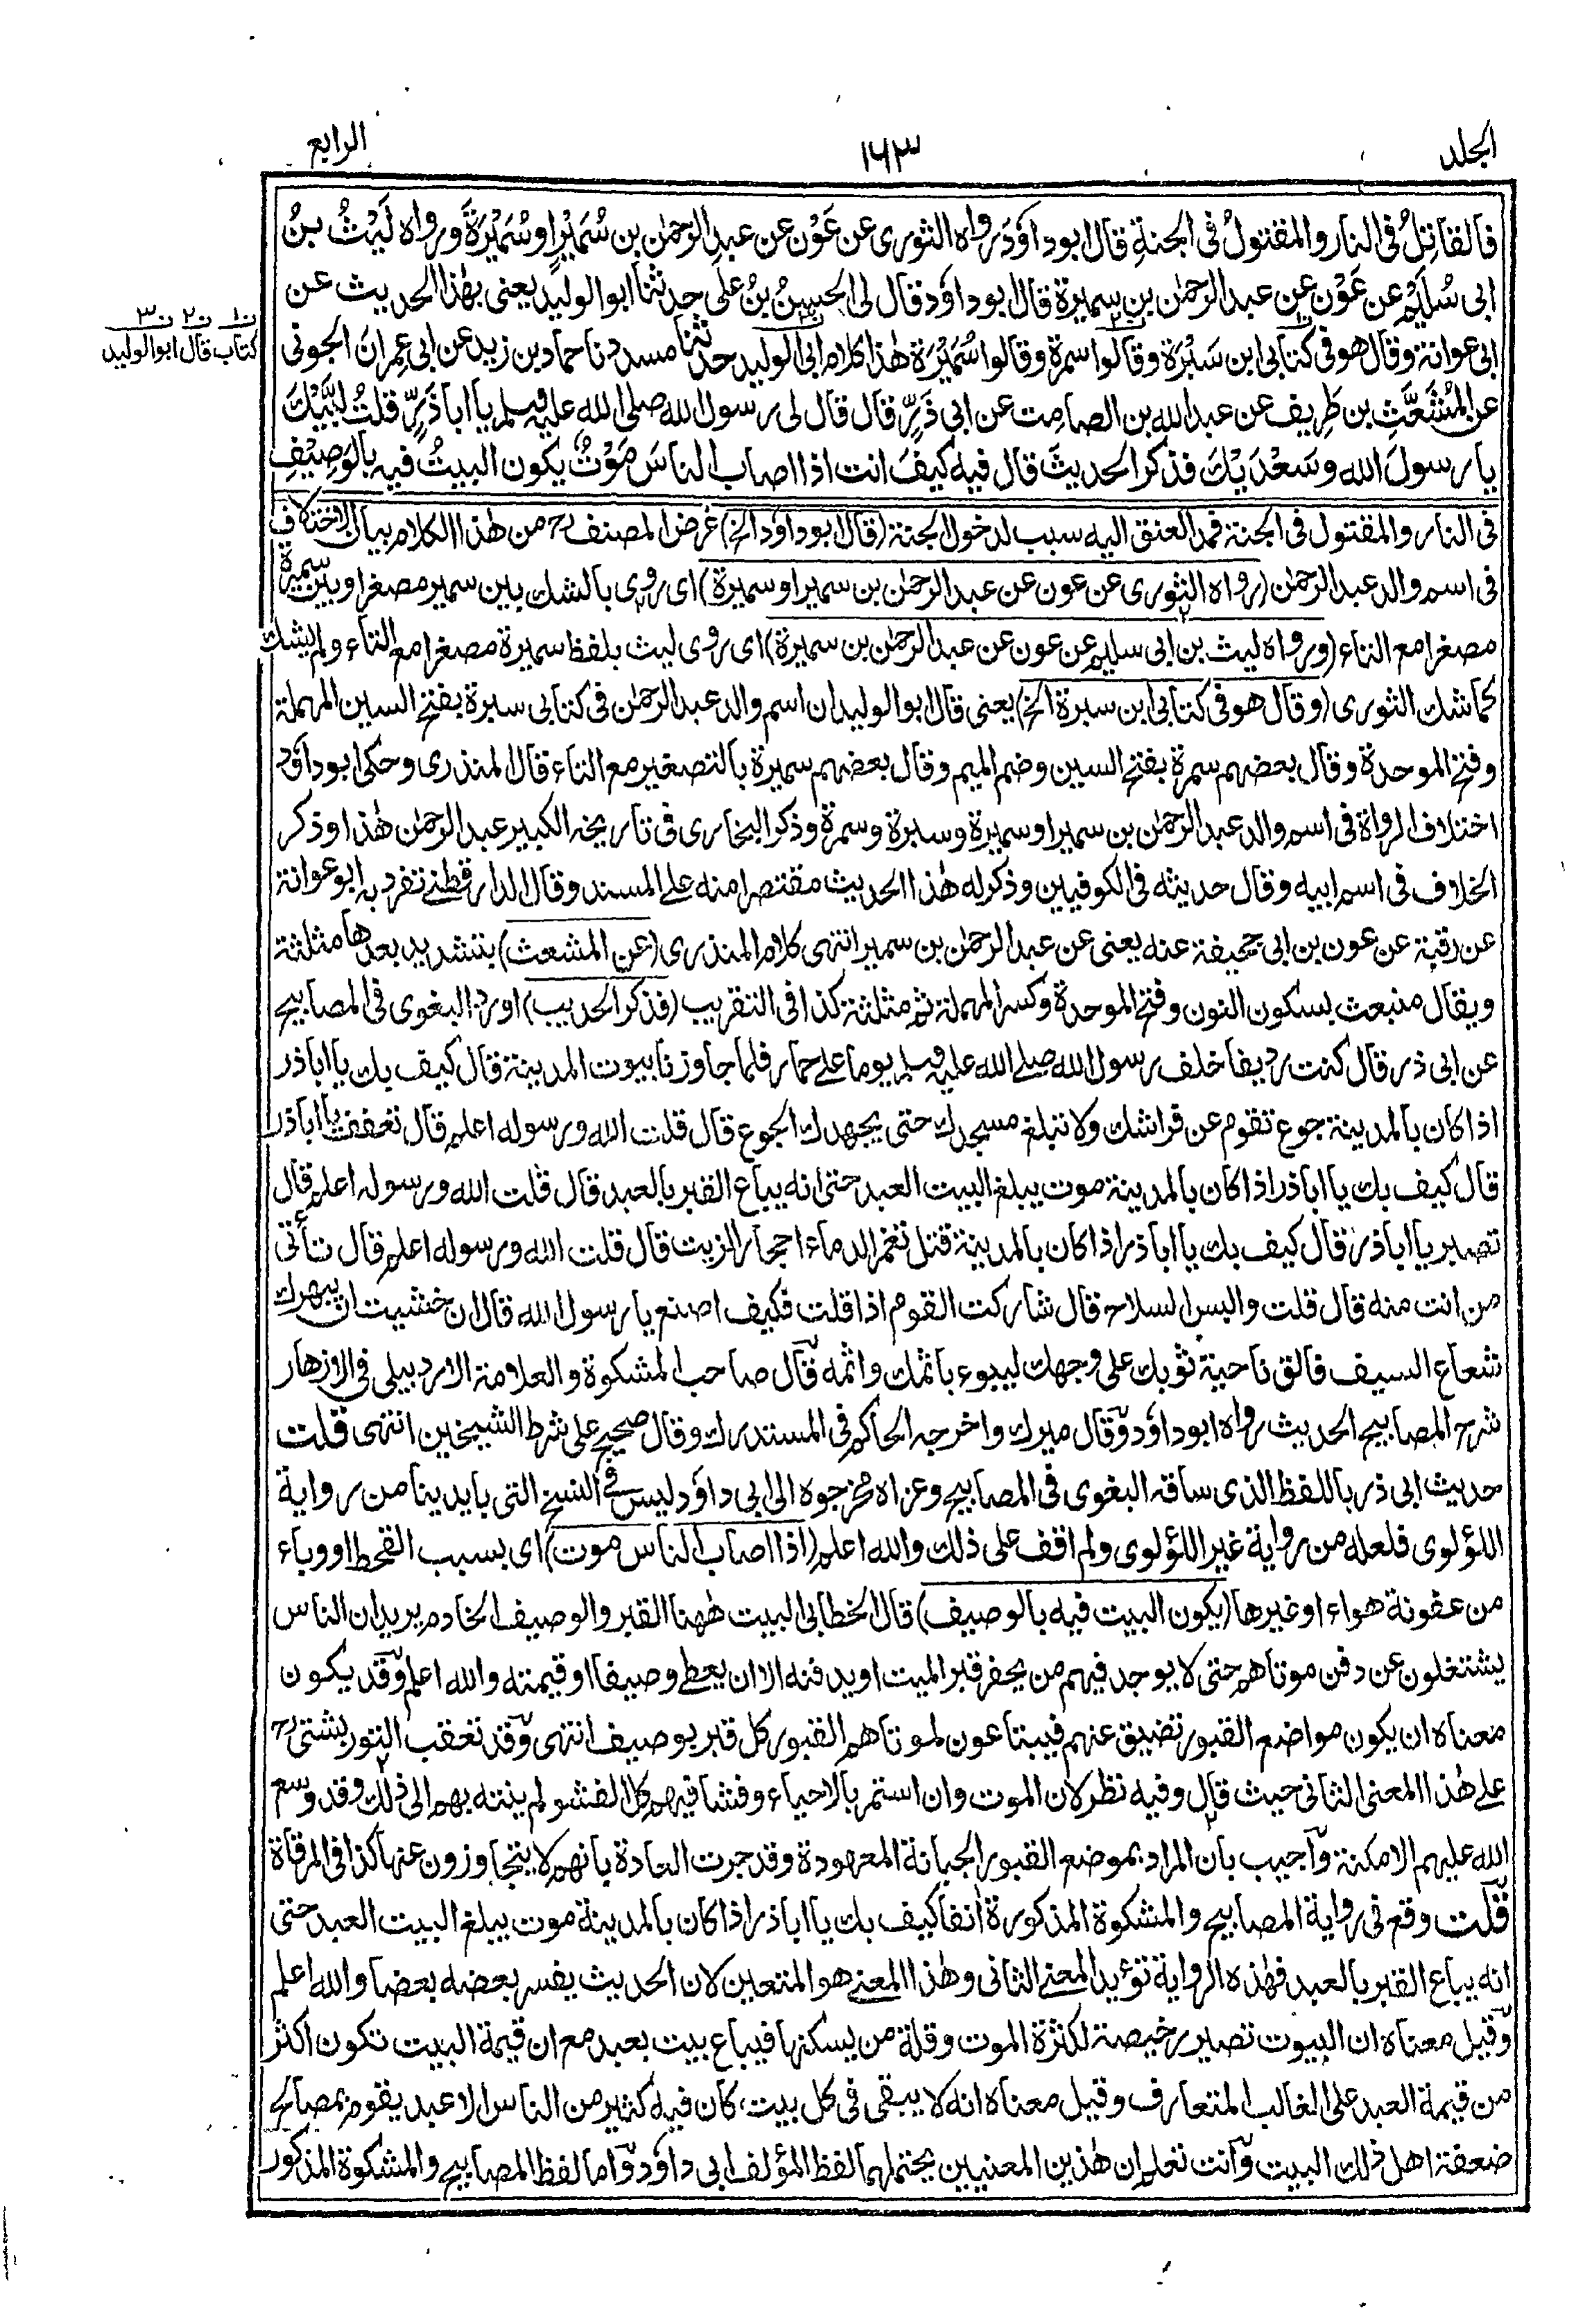 الجلد
١٦٣
الرابع
فالقاتِلُ فى النار والمقتولُ فى الجنةِ قال ابوداؤدَ رواه الثورى عن عَوْن عن عبدِ الرحمٰن بن سُمَيْرٍ او سُمَيْرَةَ ورواه لَيْثُ بنُ
ابى سُلَيْمٍ عن عَوْن عن عبد الرحمٰن بن سميرة قال ابوداؤد قال لى الحسنُ بنُ على حدثنا ابو الوليد يعنى بهٰذا الحديث عن
ابى عوانة وقال هو فى كتابى ابن سَبْرَة وقالوا سمرة وقالوا سُمَيْرَة هٰذا كلام ابى الوليد حدثنا مسدد نا حماد بن زيد عن ابى عِمرانَ الجونى
عن المُشَعَّثِ بن طَرِيف عن عبد الله بن الصامِت عن ابى ذَرٍّ قال قال لى رسول الله صلى الله عليه وسلم يا ابا ذَرٍّ قلتُ لَبَّيْكَ
يا رسولَ الله وسَعْدَيْكَ فذكر الحديثَ قال فيه كيفَ انت اذا اصاب الناسَ مَوْتٌ يكون البيتُ فيه بالوَصِيْفِ
ن١ ن٢ ن٣
كتاب قال ابو الوليد
فى النار والمقتول فى الجنة فمد العنق اليه سبب لدخول الجنة (قال ابوداؤد الخ) غرض المصنف رح من هٰذا الكلام بيان الاختلاف
فى اسم والد عبد الرحمٰن (رواه الثورى عن عون عن عبد الرحمٰن بن سمير او سميرة) اى روى بالشك بين سمير مصغرا وبين سميرة
مصغرا مع التاء (ورواه ليث بن ابى سليم عن عون عن عبد الرحمٰن بن سميرة) اى روى ليث بلفظ سميرة مصغرا مع التاء ولم يشك
كما شك الثورى (وقال هو فى كتابى ابن سبرة الخ) يعنى قال ابو الوليد ان اسم والد عبد الرحمٰن فى كتابى سبرة بفتح السين المهملة
وفتح الموحدة وقال بعضهم سمرة بفتح السين وضم الميم وقال بعضهم سميرة بالتصغير مع التاء قال المنذرى وحكى ابوداؤد
اختلاف الرواة فى اسم والد عبد الرحمٰن بن سمير او سميرة وسبرة وسمرة وذكر البخارى فى تاريخه الكبير عبد الرحمٰن هٰذا وذكر
الخلاف فى اسم ابيه وقال حديثه فى الكوفيين وذكر له هٰذا الحديث مقتصرا منه على المسند وقال الدارقطنى تفرد به ابو عوانة
عن رقبة عن عون بن ابى جحيفة عنه يعنى عن عبد الرحمٰن بن سمير انتهى كلام المنذرى (عن المشعث) بتشديد بعدها مثلثة
ويقال منبعث بسكون النون وفتح الموحدة وكسر المهملة ثم مثلثة كذا فى التقريب (فذكر الحديث) اورد البغوى فى المصابيح
عن ابى ذر قال كنت رديفا خلف رسول الله صلى الله عليه وسلم يوما على حمار فلما جاوزنا بيوت المدينة قال كيف بك يا ابا ذر
اذا كان بالمدينة جوع تقوم عن فراشك ولا تبلغ مسجدك حتى يجهدك الجوع قال قلت الله ورسوله اعلم قال تعفف يا ابا ذر
قال كيف بك يا ابا ذر اذا كان بالمدينة موت يبلغ البيت العبد حتى انه يباع القبر بالعبد قال قلت الله ورسوله اعلم قال
تصبر يا ابا ذر قال كيف بك يا ابا ذر اذا كان بالمدينة قتل تغمر الدماء احجار الزيت قال قلت الله ورسوله اعلم قال تأتى
من انت منه قال قلت والبس السلاح قال شاركت القوم اذا قلت فكيف اصنع يا رسول الله قال ان خشيت ان يبهرك
شعاع السيف فالق ناحية ثوبك على وجهك ليبوء باثمك واثمه قال صاحب المشكوة والعلامة الاردبيلى فى الازهار
شرح المصابيح الحديث رواه ابوداؤد وقال ميرك واخرجه الحاكم فى المستدرك وقال صحيح على شرط الشيخين انتهى قلت
حديث ابى ذر باللفظ الذى ساقه البغوى فى المصابيح وعزاه مخرجوه الى ابى داؤد ليس فى النسخ التى بايدينا من رواية
اللؤلوى فلعله من رواية غير اللؤلوى ولم اقف على ذلك والله اعلم (اذا اصاب الناس موت) اى بسبب القحط او وباء
من عفونة هواء او غيرها (يكون البيت فيه بالوصيف) قال الخطابى البيت هٰهنا القبر والوصيف الخادم يريد ان الناس
يشتغلون عن دفن موتاهم حتى لا يوجد فيهم من يحفر قبر الميت او يدفنه الا ان يعطى وصيفا او قيمته والله اعلم وقد يكون
معناه ان يكون مواضع القبور تضيق عنهم فيبتاعون لموتاهم القبور كل قبر بوصيف انتهى وقد تعقب التوربشتى رح
على هٰذا المعنى الثانى حيث قال وفيه نظر لان الموت وان استمر بالاحياء وفشا فيهم كل الفشو لم ينته بهم الى ذلك وقد وسع
الله عليهم الامكنة واجيب بان المراد بموضع القبور الجبانة المعهودة وقد جرت العادة بانهم لا يتجاوزون عنها كذا فى المرقاة
قلت وقع فى رواية المصابيح والمشكوة المذكورة آنفا كيف بك يا ابا ذر اذا كان بالمدينة موت يبلغ البيت العبد حتى
انه يباع القبر بالعبد فهٰذه الرواية تؤيد المعنى الثانى وهٰذا المعنى هو المتعين لان الحديث يفسر بعضه بعضا والله اعلم
وقيل معناه ان البيوت تصير رخيصة لكثرة الموت وقلة من يسكنها فيباع بيت بعبد مع ان قيمة البيت تكون اكثر
من قيمة العبد على الغالب المتعارف وقيل معناه انه لا يبقى فى كل بيت كان فيه كثير من الناس الا عبد يقوم بمصالح
ضعفة اهل ذلك البيت وانت تعلم ان هٰذين المعنيين يحتملهما لفظ المؤلف ابى داؤد واما لفظ المصابيح والمشكوة المذكور